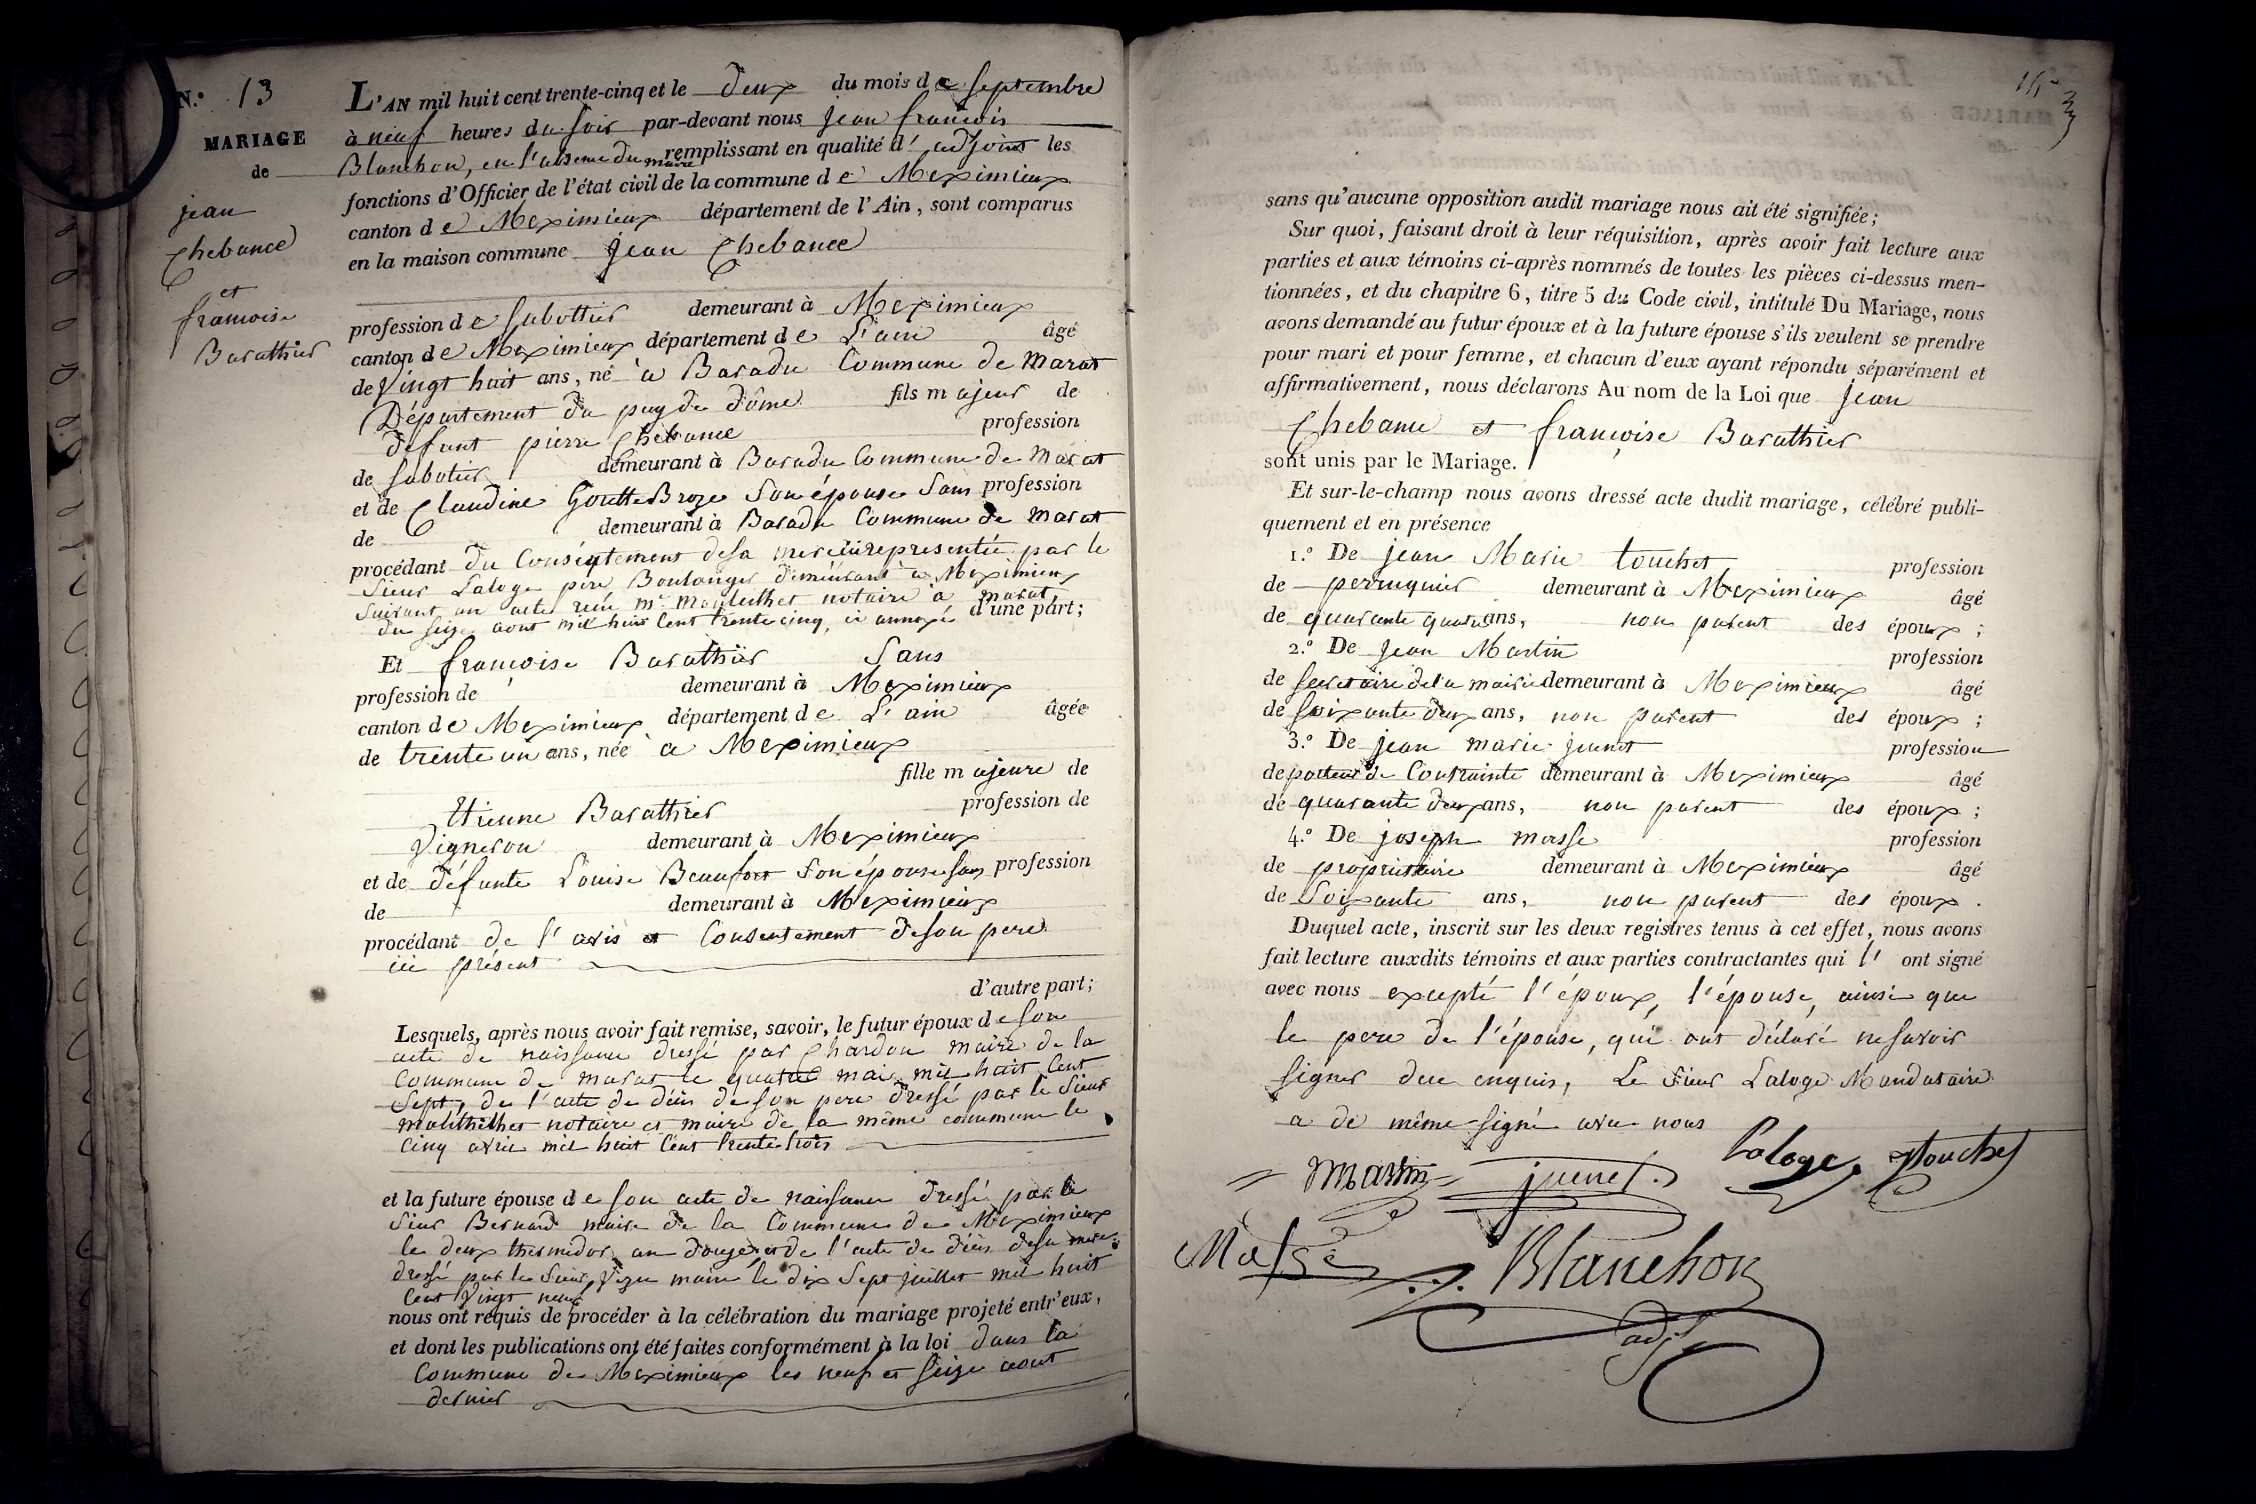 N.º 13
MARIAGE
de
jean
Chebance
et
francoise
Barathier
L'AN mil huit cent trente-cinq et le deux du mois de septembre
à neuf heures du soir par-devant nous jean francois
Blanchon, en l'absence du maire remplissant en qualité d' adjoint les
fonctions d'Officier de l'état civil de la commune de Meximieux
canton de Meximieux département de l'Ain, sont comparus
en la maison commune jean Chebance
profession de sabottier demeurant à Meximieux
canton de Meximieux département de L'ain âgé
de Vingt huit ans, né à Baradu Commune de Marat
Département du puy de dôme fils majeur de
defunt pierre Chebance profession
de sabotier demeurant à Baradu Commune de Marat
et de Claudine Goutte Broze son épouse sans profession
de demeurant à Baradu Commune de Marat
procédant du Conséntement de sa mere ici representée par le
sieur Laloge pere Boulanger demeurant à Meximieux
suivant un acte reçu mr notaire à marat
du seize aout mil huit Cent trente cinq, ci annexé d'une part;
Et françoise Barathier Sans
profession de demeurant à Meximieux
canton de Meximieux département de L'ain âgée
de trente un ans, née à Meximieux
fille majeure de
Etienne Barathier profession de
Vigneron demeurant à Meximieux
et de défunte Louise Beaufort son épouse sans profession
de demeurant à Meximieux
procédant de l'avis et Consentement de son pere
ici présent
d'autre part;
Lesquels, après nous avoir fait remise, savoir, le futur époux de son
acte de naissance dressé par Chardon maire de la
Commune de marat le quatre mai mil huit Cent
Sept, de l'acte de décès de son pere dressé par le sieur
notaire et maire de la même commune le
Cinq avril mil huit Cent trente trois
et la future épouse de son acte de naissance dressé par le
sieur Bernard maire de la Commune de Meximieux
le deux thermidor an douze et de l'acte de décès de sa mere
dressé par le sieur maire le dix Sept juillet mil huit
Cent Vingt neuf
nous ont requis de procéder à la célébration du mariage projeté entr'eux,
et dont les publications ont été faites conformément à la loi dans la
Commune de Meximieux les neuf et seize aout
dernier
sans qu'aucune opposition audit mariage nous ait été signifiée;
Sur quoi, faisant droit à leur réquisition, après avoir fait lecture aux
parties et aux témoins ci-après nommés de toutes les pièces ci-dessus men-
tionnées, et du chapitre 6, titre 5 du Code civil, intitulé Du Mariage, nous
avons demandé au futur époux et à la future épouse s'ils veulent se prendre
pour mari et pour femme, et chacun d'eux ayant répondu séparément et
affirmativement, nous déclarons Au nom de la Loi que jean
Chebance et françoise Barathier
sont unis par le Mariage.
Et sur-le-champ nous avons dressé acte dudit mariage, célébré publi-
quement et en présence
1.º De jean Marie touchet profession
de perruquier demeurant à Meximieux âgé
de quarante quatre ans, non parent des époux ;
2.º De jean Martin profession
de secretaire de la mairie demeurant à Meximieux âgé
de soixante deux ans, non parent des époux ;
3.º De jean marie juenet profession
de porteur de Contrainte demeurant à Meximieux âgé
de quarante deux ans, non parent des époux ;
4.º De joseph masse profession
de propriétaire demeurant à Meximieux âgé
de Soixante ans, non parent des époux .
Duquel acte, inscrit sur les deux registres tenus à cet effet, nous avons
fait lecture auxdits témoins et aux parties contractantes qui l' ont signé
avec nous excepté l'époux, l'épouse, ainsi que
le pere de l'épouse, qui ont déclaré ne savoir
signer de ce enquis, Le sieur Laloge Mandataire
a de même signé avec nous
Martin juenet. Laloge touchet
Masse J. Blanchon
adjt